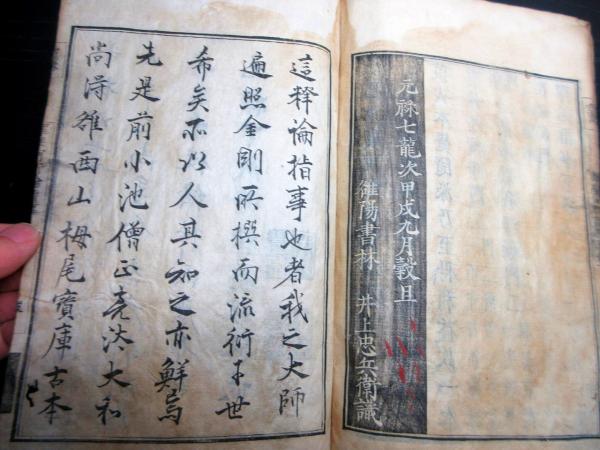 元禄七龍次甲戌九月穀旦
雒陽書林 井上忠兵衛識
這釋論指事也者我之大師
遍照金剛所撰而流衍于世
希矣所以人其知之亦鮮焉
先是前小池僧正亮汰大和
尚得雒西山栂尾寶庫古本